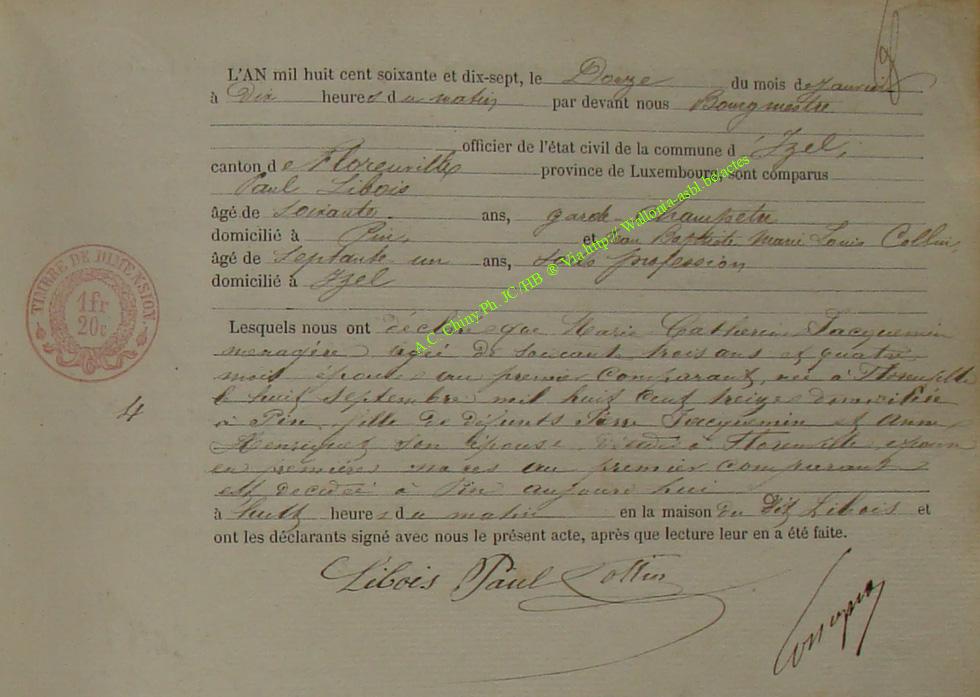 L'AN mil huit cent soixante et dix-sept, le Douze du mois de janvier
à Dix heures du matin par devant nous Bourgmestre
officier de l'état civil de la commune d'Izel,
canton de Florenville province de Luxembourg, sont comparus
Paul Libois
âgé de soixante ans, garde champêtre
domicilié à Pin, et Jean Baptiste Marie Louis Collin,
âgé de septante un ans, sans profession
domicilié à Izel
Lesquels nous ont déclaré que Marie Catherine Jacquemin
menagère agée de soixante trois ans et quatre
mois épouse au premier comparant, née à Florenville
le huit septembre mil huit cent treize domiciliée
à Pin, fille de défunts Pierre Jacquemin et Anne
Henriquet son épouse à Florenville, épouse
en premières noces au premier comparant
est decédée à Pin aujourd hui
à huit heures du matin en la maison du dit Libois et
ont les déclarants signé avec nous le présent acte, après que lecture leur en a été faite.
Libois Paul Collin
TIMBRE DE DIMENSION
1 fr
20c
4
A.C. Chiny Ph. JC/HB ® Via http://Wallonia-asbl.be/actes